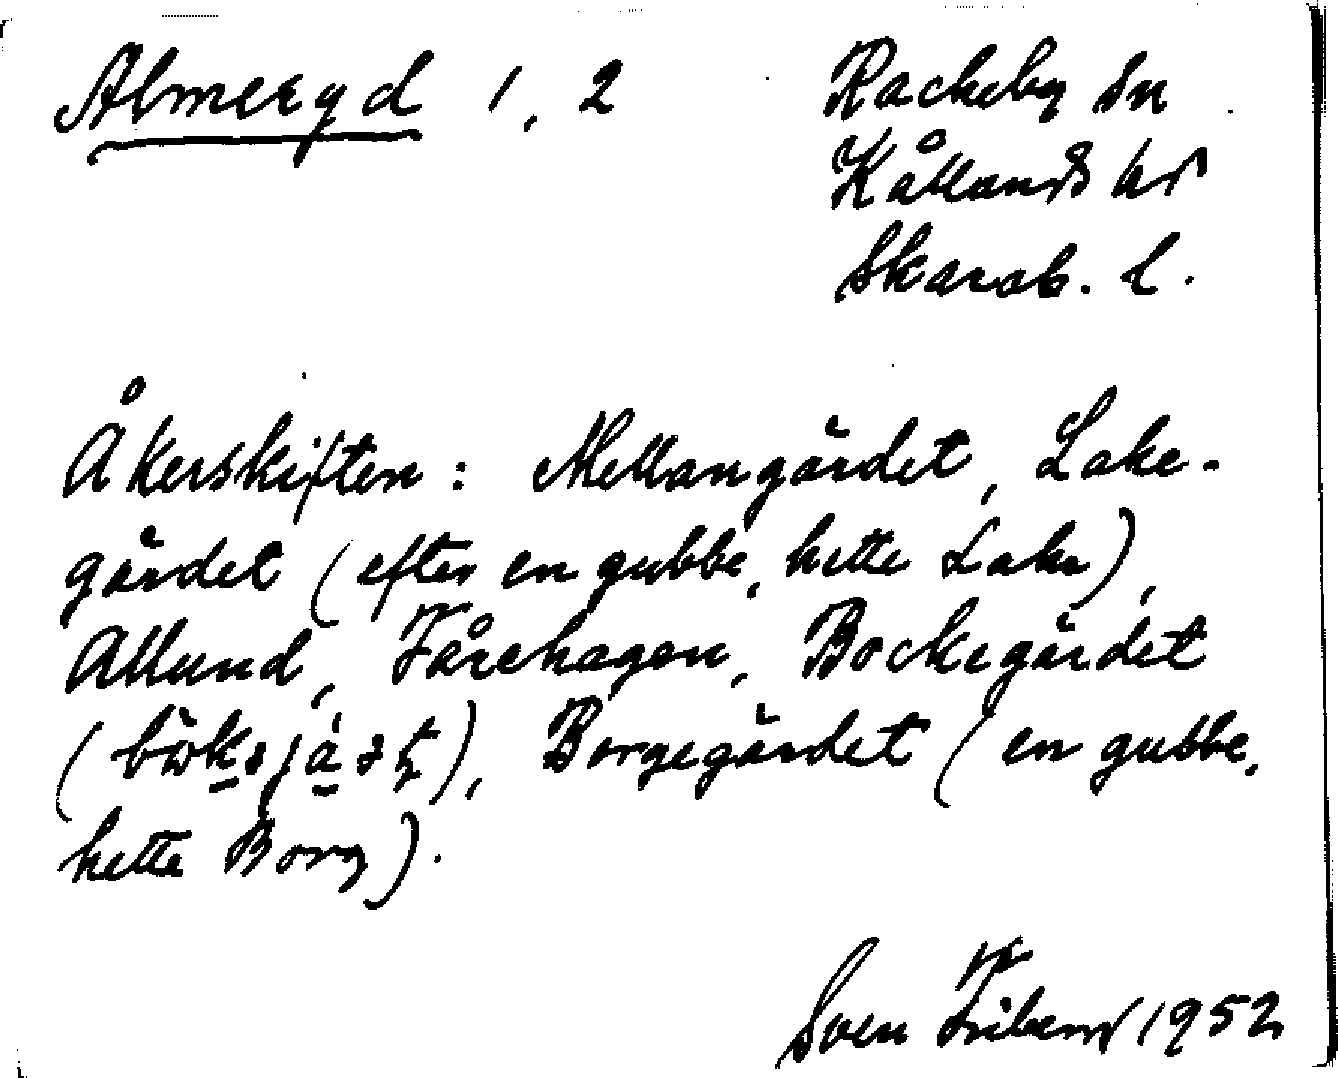 Almeryd 1, 2
Rackeby sn
Kållands hd
Skarab. l.
Åkerskiften: Mellangärdet, Lake-
gärdet (efter en gubbe, hette Lake),
Allund, Fårehagen, Bockegärdet
Borgegärdet (en gubbe,
hette Borg).
Sven Friberg 1952